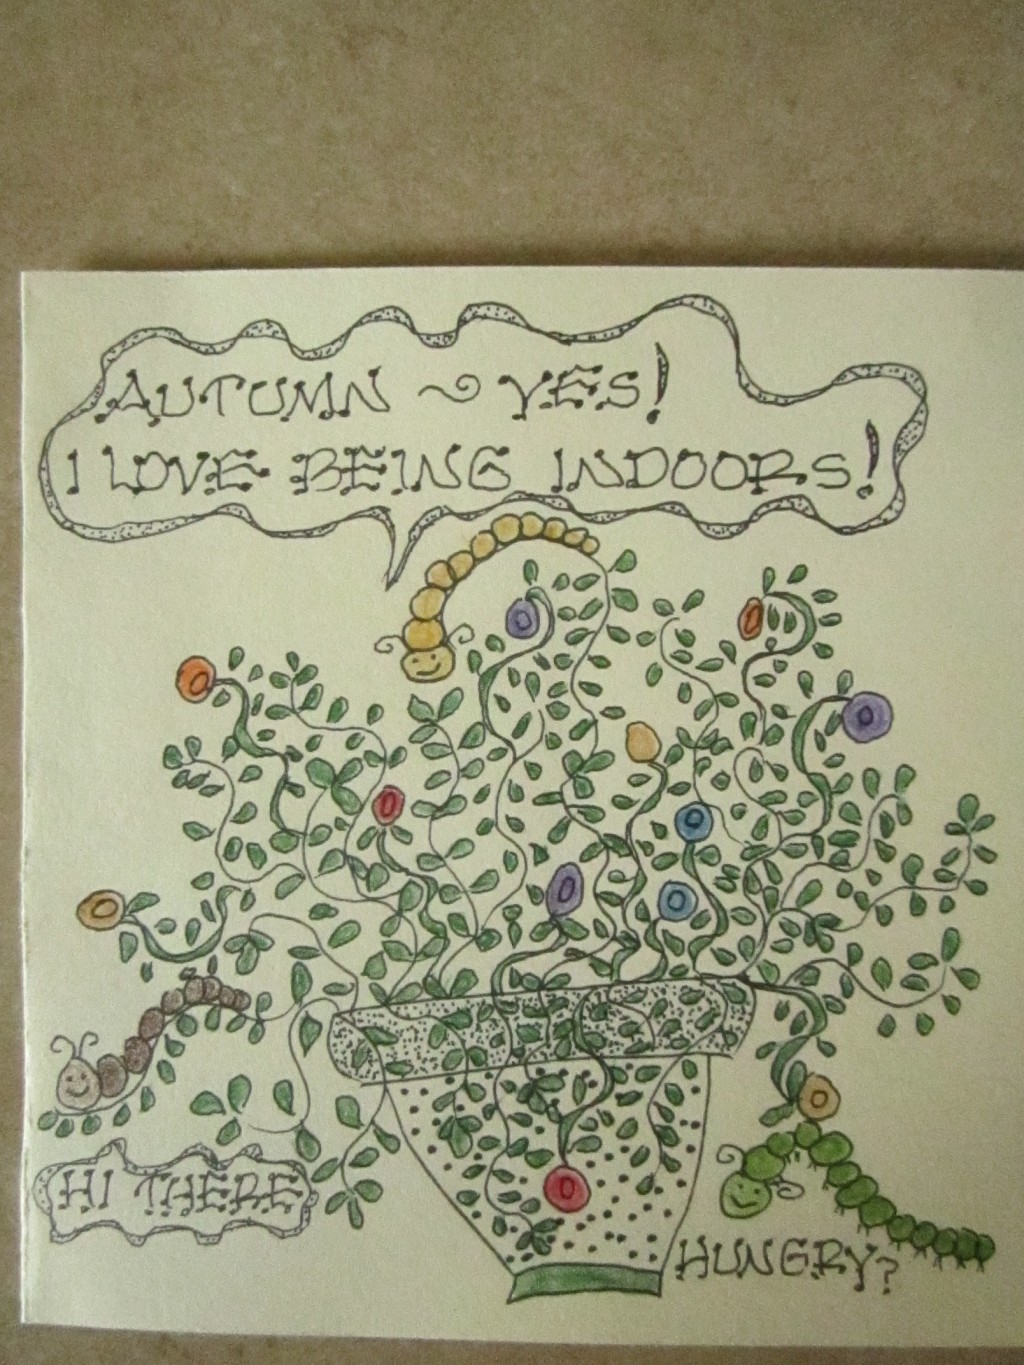 AUTUMN ~ YES!
I LOVE BEING INDOORS!
HI THERE
HUNGRY?